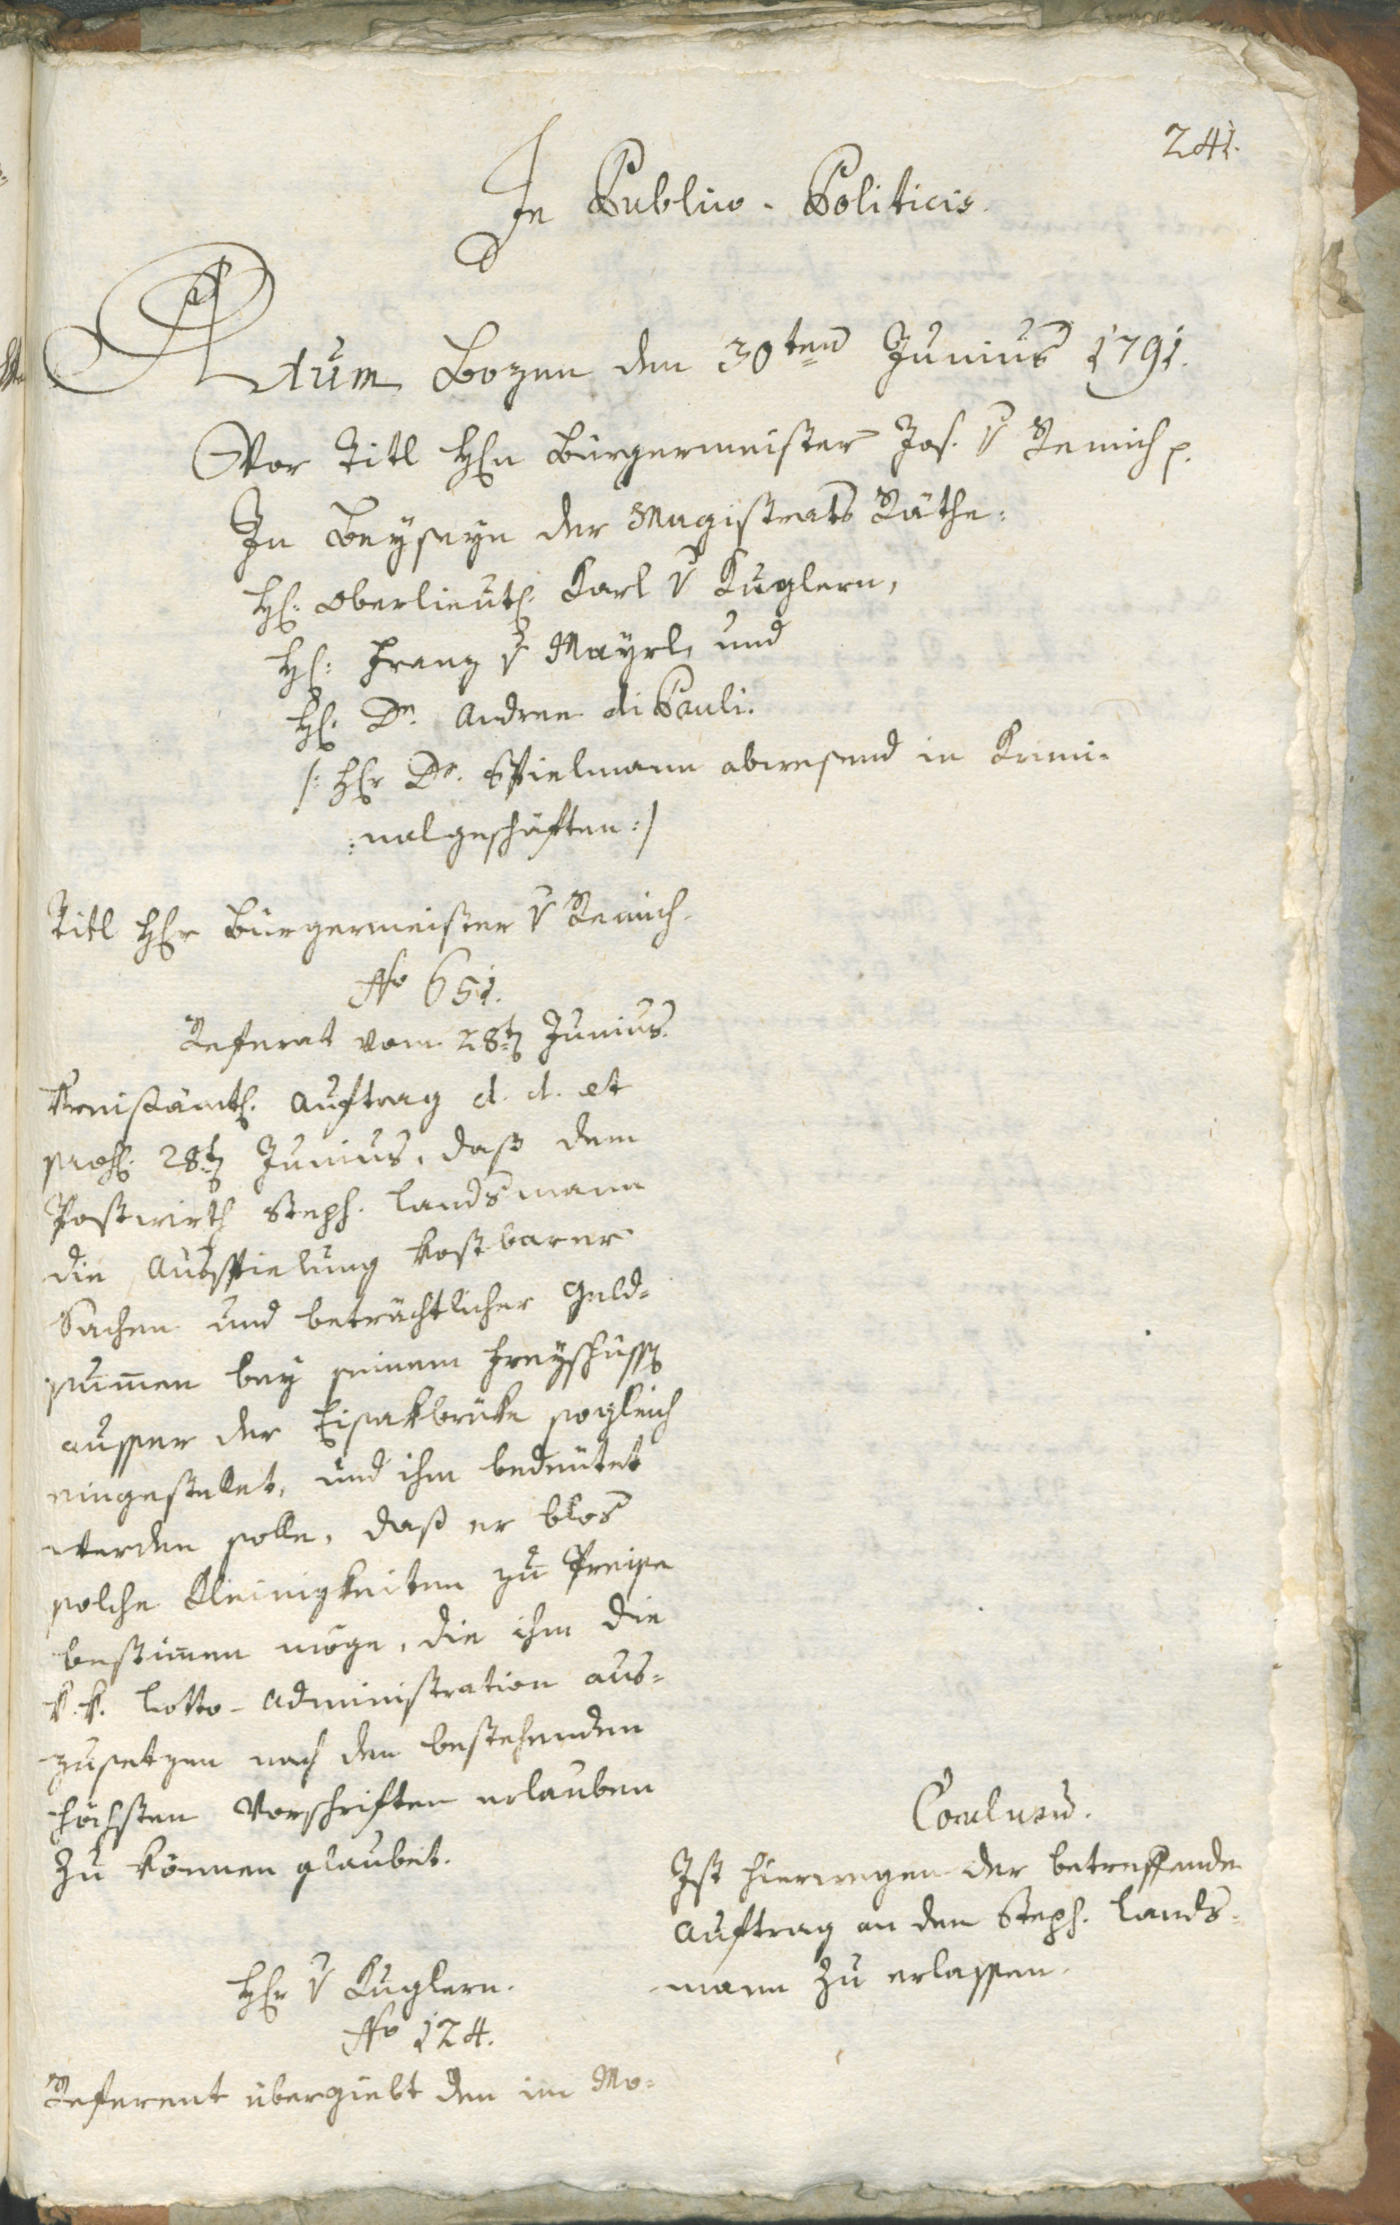 241.
In Publico-Politicis.
Actum Bozen den 30ten Junius 1791.
Vor Titl H[err]n Bürgermeister Jos. v Remich p.
In Beyseyn der Magistrats Räthe:
H: Oberlieut: Karl v Kuglern,
H: Franz v Mayrl, und
H: Dr. Andree di Pauli.
/: Hr Dr. Spielmann abwesend in Krimi-
:nalgeschäften :/
Titl Hr Bürgermeister v Remich.
No 651.
Referat vom 28t Junius.
Kreisämtl. Auftrag d. d. et
28t Junius, daß dem
Postwirth Steph. Landsmann
die Ausspielung kostbarer
Sachen und beträchtlicher Geld-
summen bey seinem Freyschusse
ausser der Eisakbrüke sogleich
eingestellet, und ihm bedeutet
werden solle, daß er blos
solche Kleinigkeiten zu Preise
bestimmen möge, die ihm die
k. k. Lotto-Administration aus-
zusetzen nach den bestehenden
höchsten Vorschriften erlauben
zu können glaubet.
Conclusum.
Ist hierwegen der betreffende
Auftrag an den Steph. Lands-
mann zu erlassen.
Hr v Kuglern.
No 124.
Referent übergiebt den im Mo-